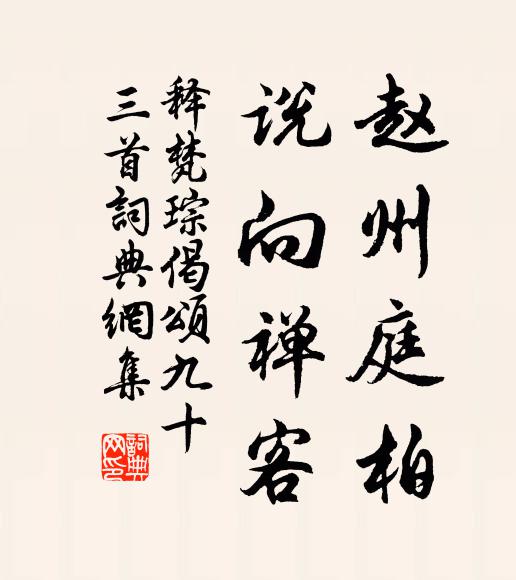 赵州庭柏
说向禅客
释梵琮偈颂九十
三首詞典網集
詞典网印